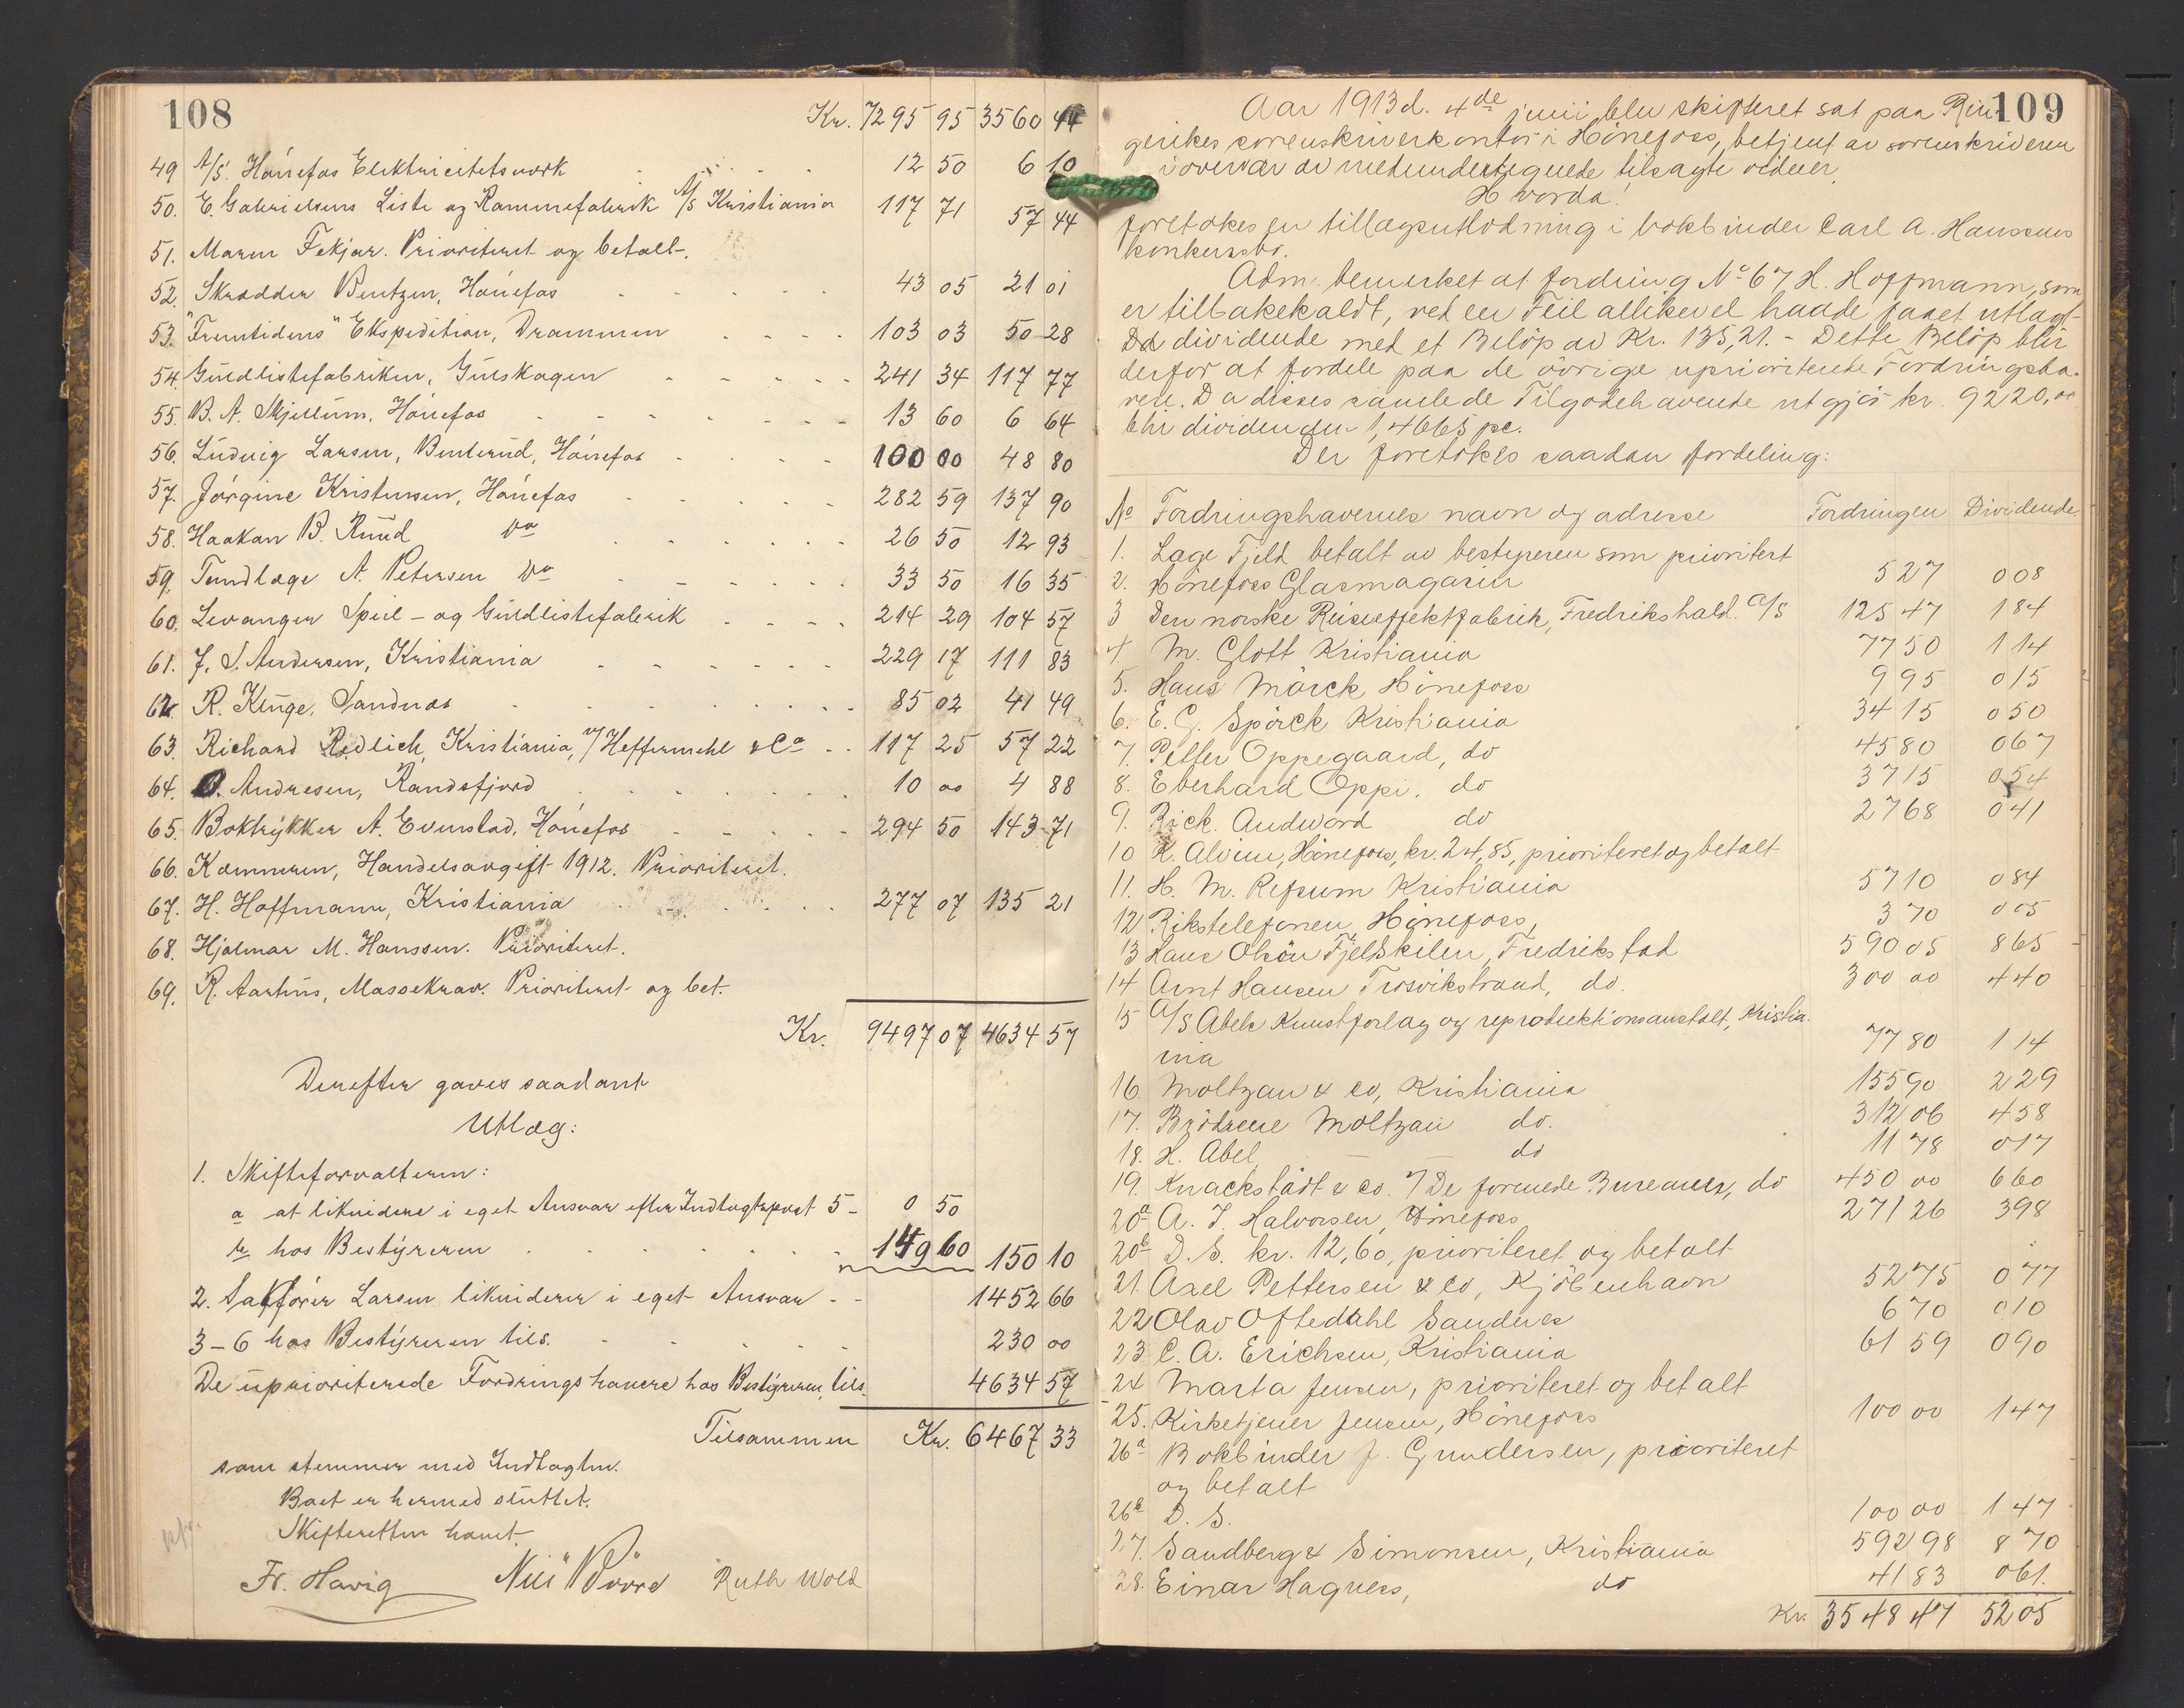 108
Kr. 7295 95 3560 44
49 A/S. Hönefos Elektricitetsverk 12 50 6 10
50. E. Gabrielsens Liste og Rammefabrik A/S Kristiania 117 71 57 44
51. Maren Fekjær. Prioriteret og betalt.
52. Skrædder Bentzen, Hönefos 43 05 21 01
53. "Fremtidens" Ekspedition, Drammen 103 03 50 28
54. Guldlistefabriken, Gulskogen 241 34 117 77
55. B. A. Mjellum, Hönefos 13 60 6 64
56. Ludvig Larsen, Benterud, Hönefos 100 00 48 80
57. Jörgine Kristensen, Hönefos 282 59 137 90
58. Haakon B. Ruud Do 26 50 12 93
59. Tandlæge A. Petersen Do 33 50 16 35
60. Levanger Speil- og Guldlistefabrik 214 29 104 57
61. J. S. Andersen, Kristiania 229 17 111 83
62. R. Kluge, Sandnes 85 02 41 49
63. Richard Redlich, Kristiania, v/ Heffermehl & Co 117 25 57 22
64. O. Andresen, Randsfjord 10 00 4 88
65. Boktrykker A. Evenstad, Hönefos 294 50 143 71
66. Kæmneren, Handelsavgift 1912. Prioriteret.
67. H. Hoffmann, Kristiania 277 07 135 21
68. Hjalmar M. Hanssen. Prioriteret.
69. R. Aarhus, Massekrav. Prioriteret og bet.
Kr. 9497 07 4634 57
Derefter gaves saadant
Utlæg:
1. Skifteforvalteren:
a at likvidere i eget Ansvar efter Indtægtspost 5 - 0 50
b hos Bestyreren 149 60 150 10
2. Sakförer Larsen likviderer i eget Ansvar - - 1452 66
3-6 hos Bestyreren tils. 230 00
De uprioriterede Fordringshavere hos Bestyreren, tils. 4634 57
Tilsammen Kr. 6467 33
som stemmer med Indtægten.
Boet er hermed sluttet.
Skifteretten hævet.
Fr. Havig Ruth Wold
109
Aar 1913 d. 4de juni blev skifteret sat paa Rin-
gerikes sorenskriverkontor i Hönefoss, betjent av sorenskriveren
i overvær av medundertegnede tilsagte vidner.
Hvorda!
foretokes en tillægsutlodning i bokbinder Carl A. Hanssens
konkursbo.
Adm. bemerket at fordring No 67 H. Hoffmann, som
er tilbakekaldt, ved en Feil allikevel hadde faaet utlagt
dividende med et Belöp av Kr. 135,21. - Dette Belöp blir
derfor at fordele paa de övrige uprioriterede Fordringsha-
vere. Da disses samlede Tilgodehavende utgjör kr. 9220,00
blir dividenden 1,4665 pc.
Der foretokes saadan fordeling:
No Fordringshavernes navn og adresse Fordringen Dividende.
1. Lage Fjeld betalt av bestyreren som prioritert
2. Hönefoss Glasmagasin 5 27 0 08
3 Den norske Reiseeffektfabrik, Fredrikshald. A/S 125 47 1 84
4 M. Glott Kristiania 77 50 1 14
5. Hans Mörck Hönefoss 9 95 0 15
6. E. G. Spörck Kristiania 34 15 0 50
7. Petter Oppegaard, do 45 80 0 67
8. Eberhard Oppi, do 37 15 0 54
9. Rich. Andvord do 27 68 0 41
10 K. Alvim, Hönefoss, kr. 24,85, prioriteret og betalt
11. H. M. Refsum Kristiania 57 10 0 84
12 Rikstelefonen, Hönefoss, 3 70 0 05
13 Hans Olsön Fjeldskilen, Fredrikstad 590 05 8 65
14 Arnt Hansen Trosvikstrand, do. 300 00 4 40
15 A/S Abels Kunstforlag og reproduktionsanstalt, Kristia-
nia 77 80 1 14
16. Moltzau & co, Kristiania 155 90 2 29
17. Brödrene Moltzau do. 312 06 4 58
18. H. Abel do 11 78 0 17
19. Knackstädt & co. v/ De forenede Bureauer, do 450 00 6 60
20a A. J. Halvorsen, Hönefoss 271 26 3 98
20b D. S. kr. 12,60, prioriteret og betalt
21. Axel Pettersen & co, Kjöbenhavn 52 75 0 77
22 Olav Oftedahl Sandnes 6 70 0 10
23 C. A. Erichsen, Kristiania 61 59 0 90
24 Marta Jensen, prioriteret og betalt
25. Kirketjener Jensen, Hönefoss 100 00 1 47
26a Bokbinder J. Gundersen, prioriteret
og betalt
26b D. S. 100 00 1 47
27. Sandberg & Simonsen, Kristiania 592 98 8 70
28. Einar Hagness, do 41 83 0 61.
Kr. 3548 47 52 05